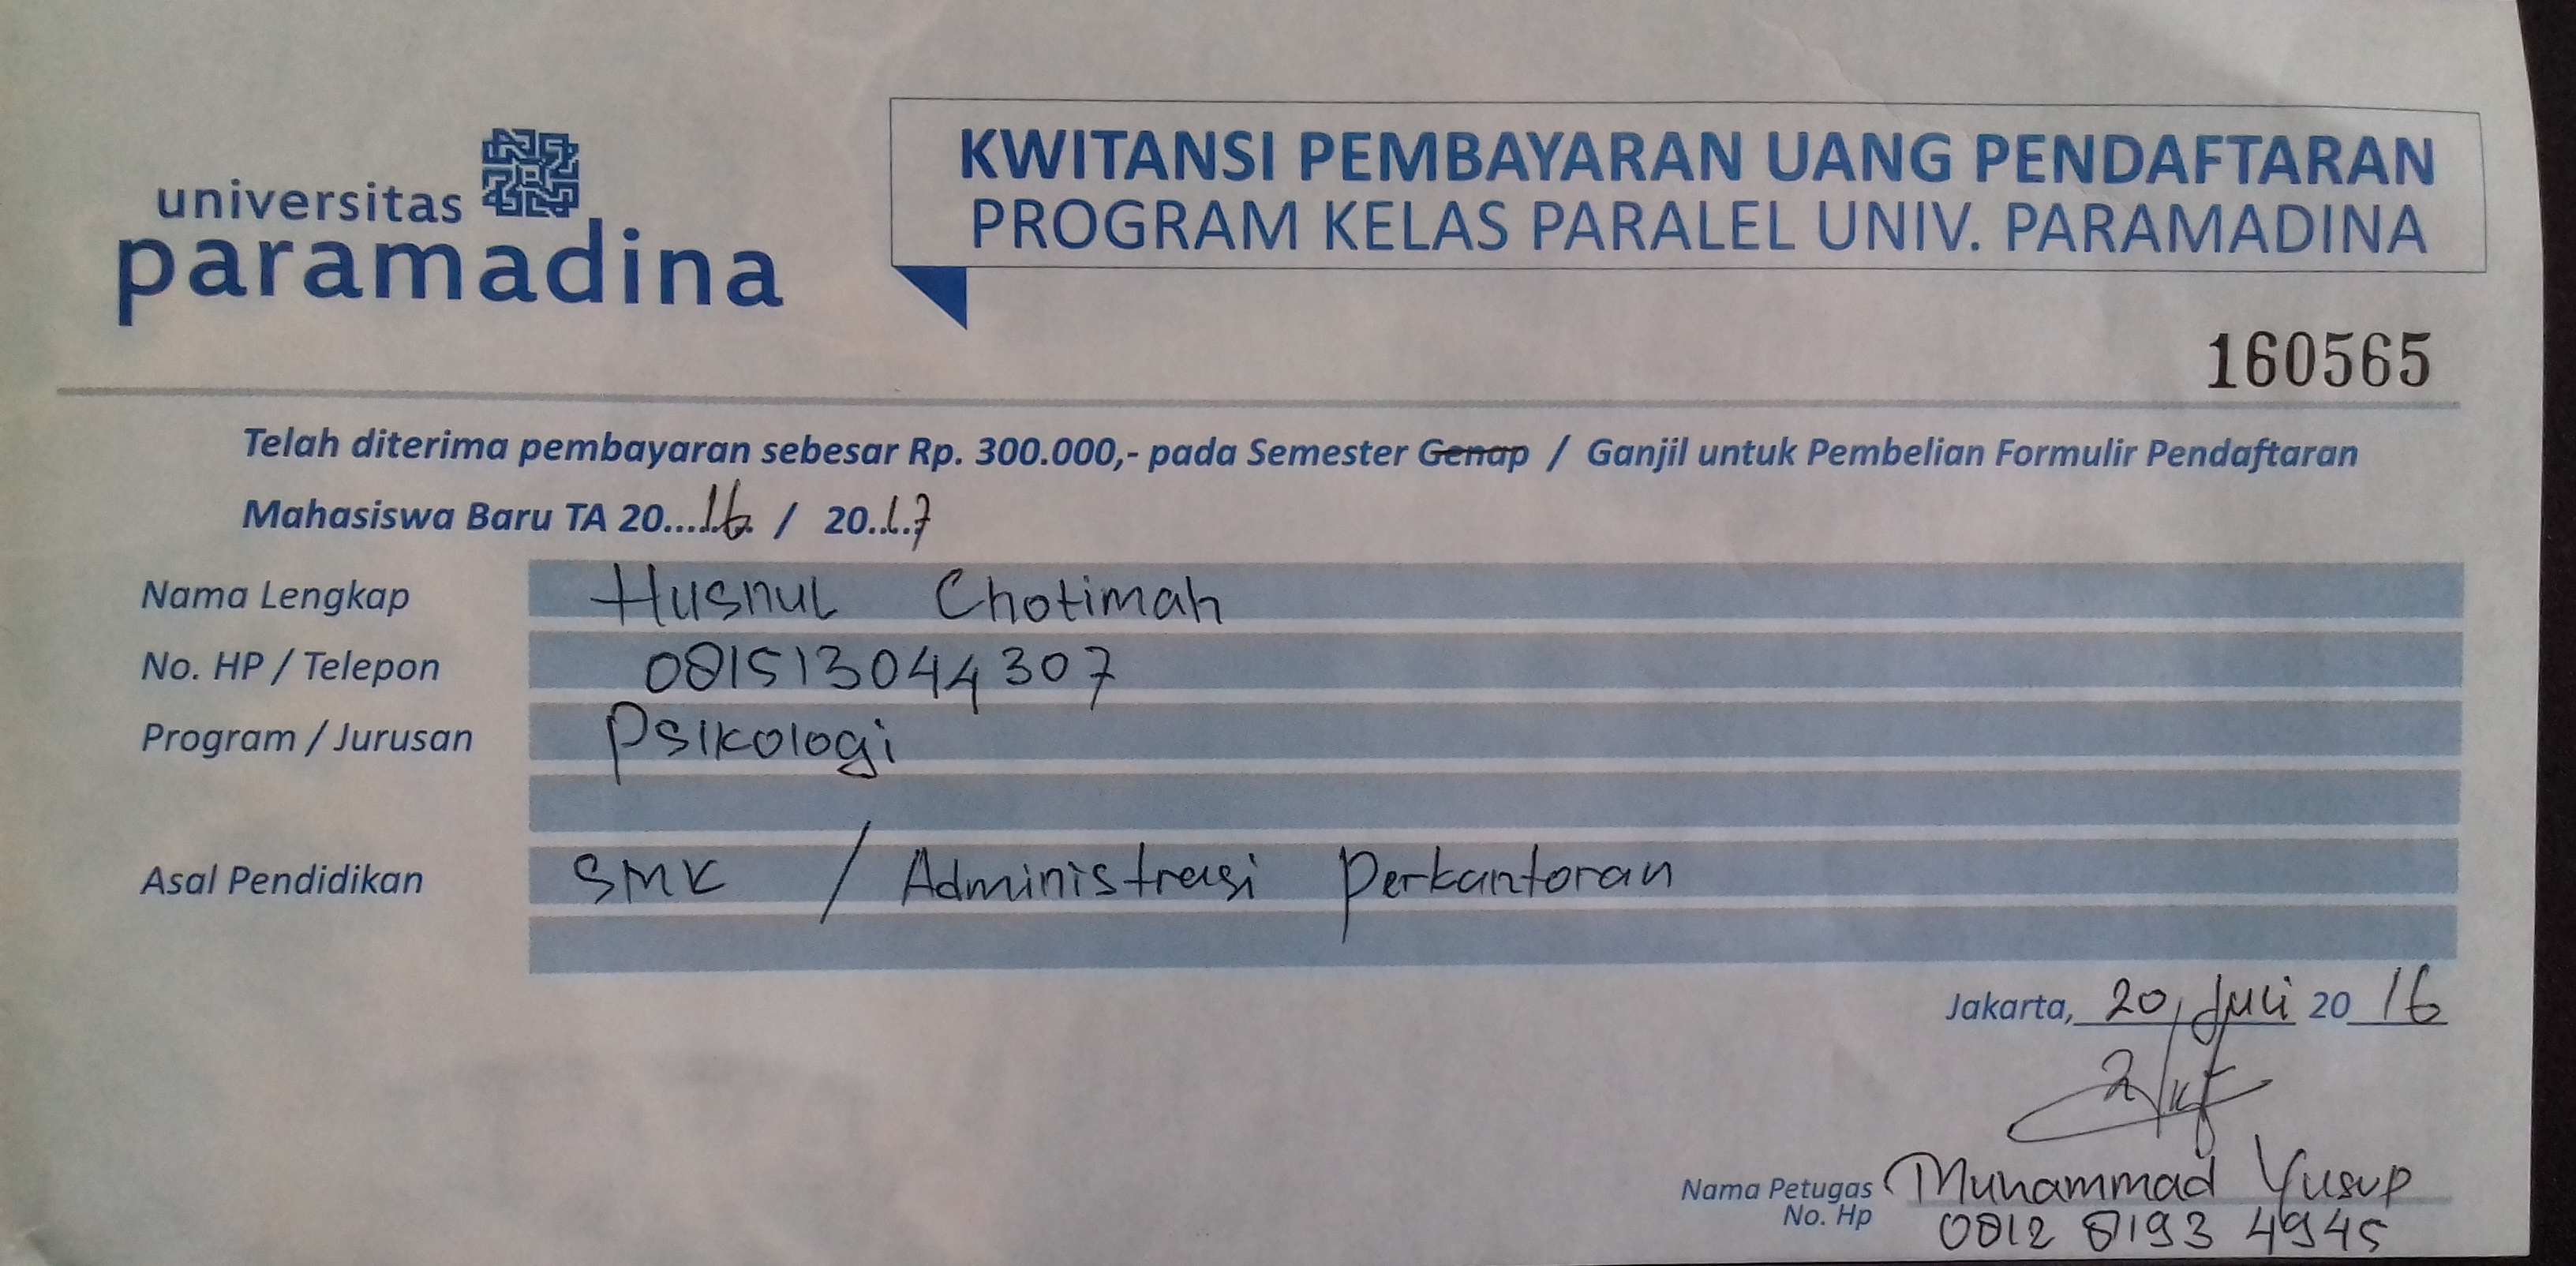 universitas
paramadina
KWITANSI PEMBAYARAN UANG PENDAFTARAN
PROGRAM KELAS PARALEL UNIV. PARAMADINA
160565
Telah diterima pembayaran sebesar Rp. 300.000,- pada Semester Genap / Ganjil untuk Pembelian Formulir Pendaftaran
Mahasiswa Baru TA 20....16. / 20..17
Nama Lengkap Husnul Chotimah
No. HP / Telepon 081513044307
Program / Jurusan Psikologi
Asal Pendidikan SMK / Administrasi Perkantoran
Jakarta, 20, Juli 20 16
Nama Petugas Muhammad Yusup
No. Hp 0812 8193 4945